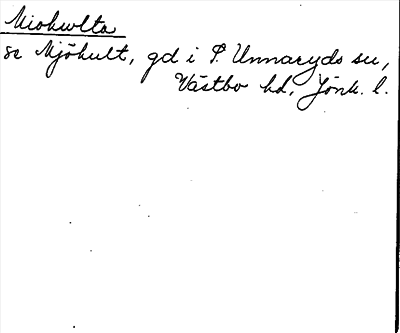 Miohwlta
se Mjöhult, gd i S. Unnaryds sn,
Västbo hd, Jönk. l.